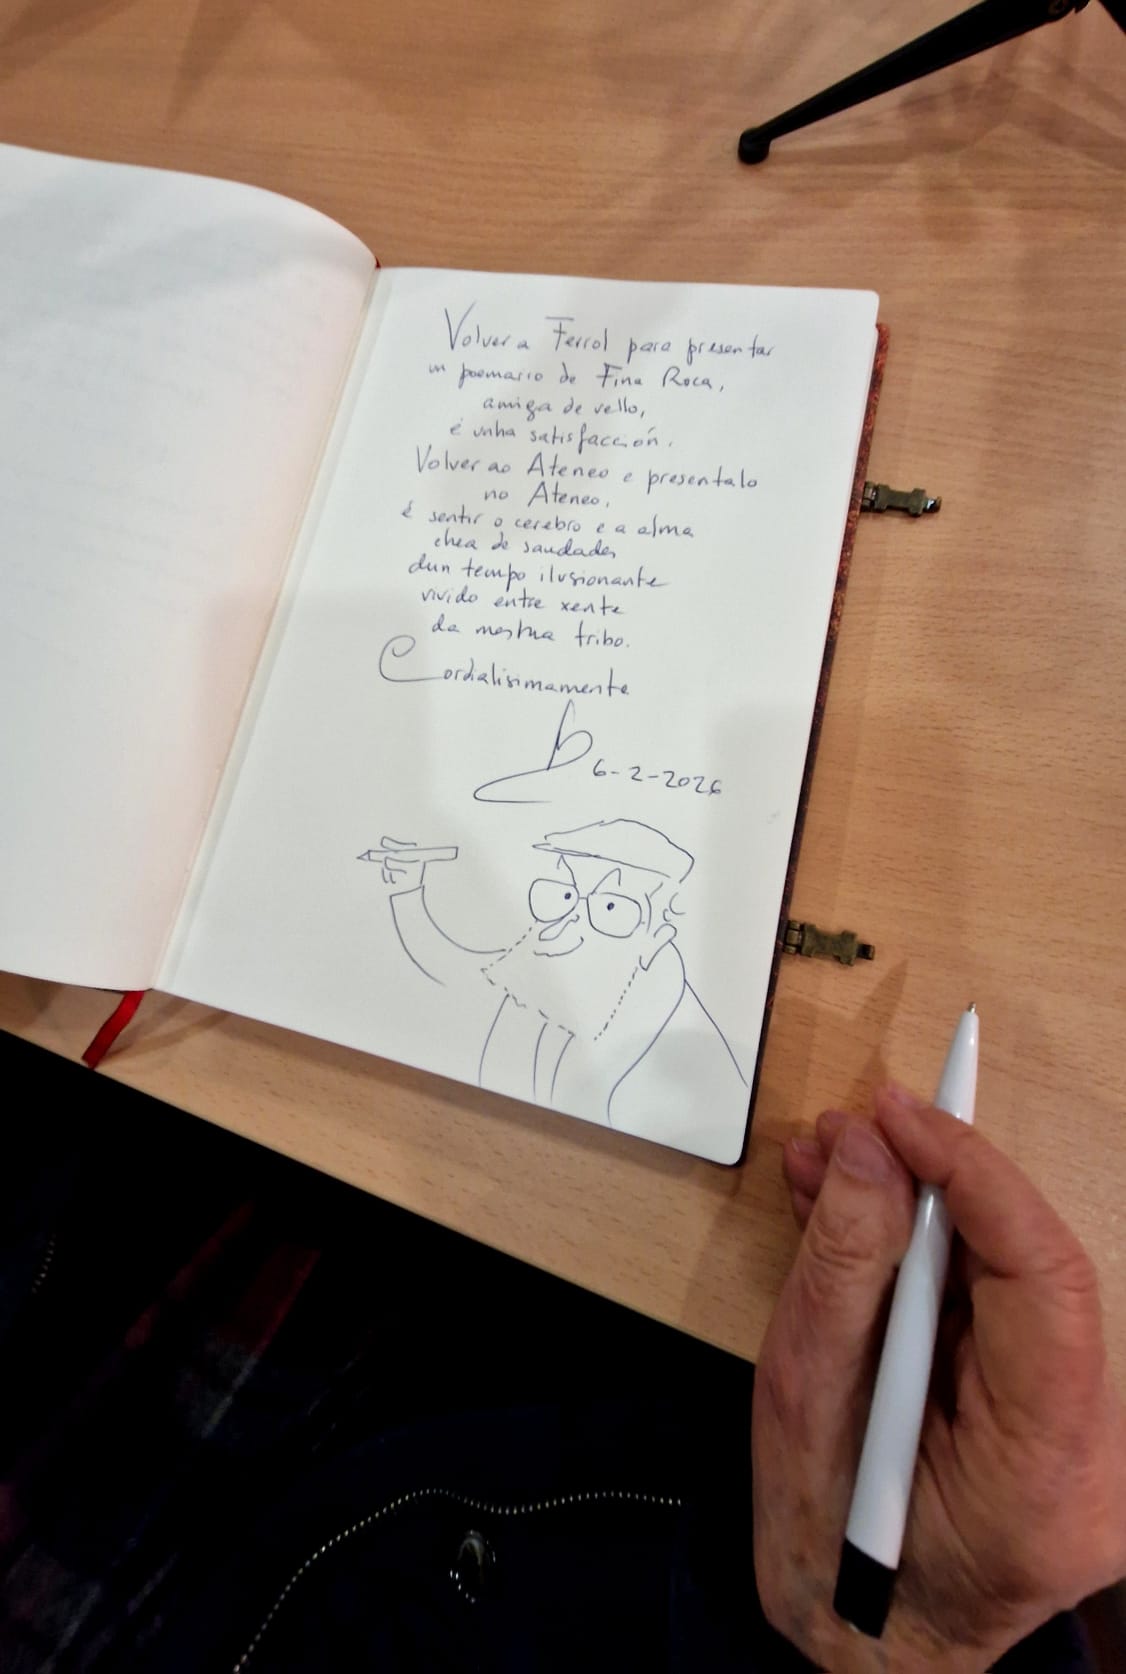 Volver a Ferrol para presentar
un poemario de Fina Roca,
amiga de vello,
é unha satisfacción.
Volver ao Ateneo e presentalo
no Ateneo,
é sentir o cerebro e a alma
chea de saudades
dun tempo ilusionante
vivido entre xente
da mesma tribo.
Cordialisimamente
6-2-2026